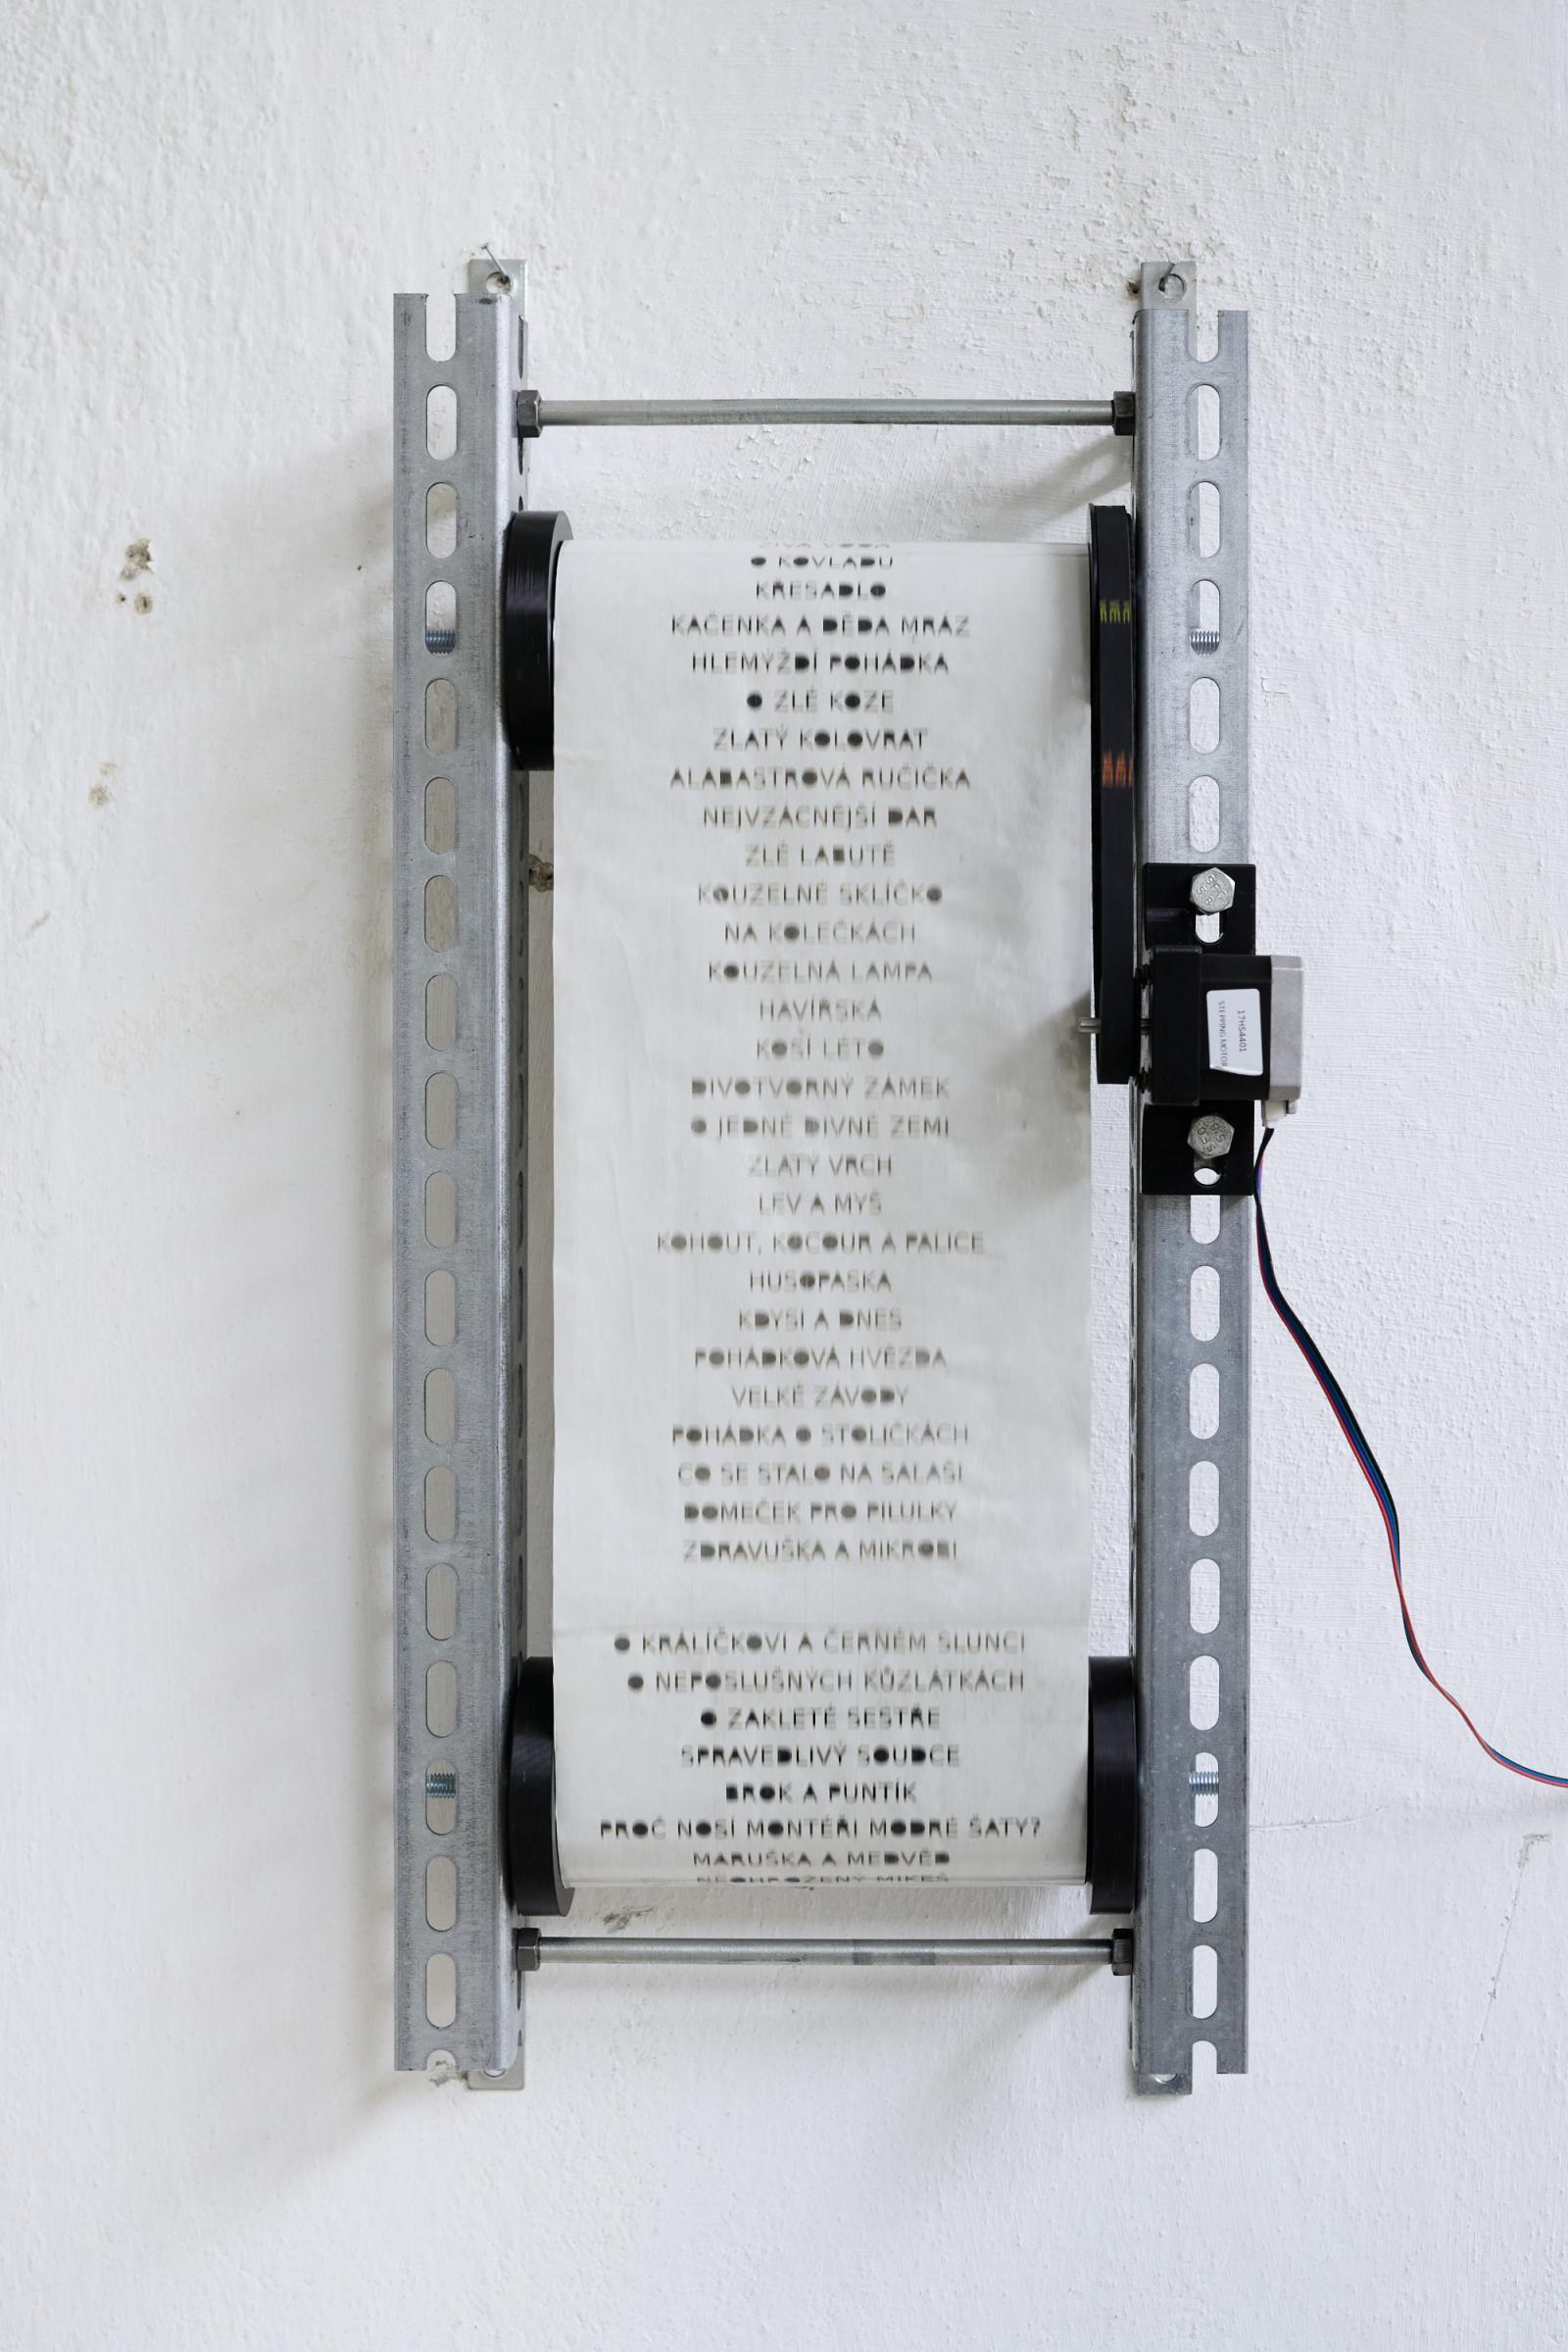 O KOVLADU
KŘESADLO
KAČENKA A DĚDA MRÁZ
HLEMÝŽDÍ POHÁDKA
O ZLÉ KOZE
ZLATÝ KOLOVRAT
ALABASTROVÁ RUČIČKA
NEJVZÁCNĚJŠÍ DAR
ZLÉ LABUTĚ
KOUZELNÉ SKLÍČKO
NA KOLEČKÁCH
KOUZELNÁ LAMPA
HAVÍŘSKÁ
KOSÍ LÉTO
DIVOTVORNÝ ZÁMEK
O JEDNÉ DIVNÉ ZEMI
ZLATÝ VRCH
LEV A MYŠ
KOHOUT, KOCOUR A PALICE
HUSOPASKA
KDYSI A DNES
POHÁDKOVÁ HVĚZDA
VELKÉ ZÁVODY
POHÁDKA O STOLIČKÁCH
CO SE STALO NA SALAŠI
DOMEČEK PRO PILULKY
ZDRAVUŠKA A MIKROBI
O KRÁLÍČKOVI A ČERNÉM SLUNCI
O NEPOSLUŠNÝCH KŮZLÁTKÁCH
O ZAKLETÉ SESTŘE
SPRAVEDLIVÝ SOUDCE
BROK A PUNTÍK
PROČ NOSÍ MONTÉŘI MODRÉ ŠATY?
MARUŠKA A MEDVĚD
NEOHROŽENÝ MIKEŠ
17HS4401
STEPPING MOTOR